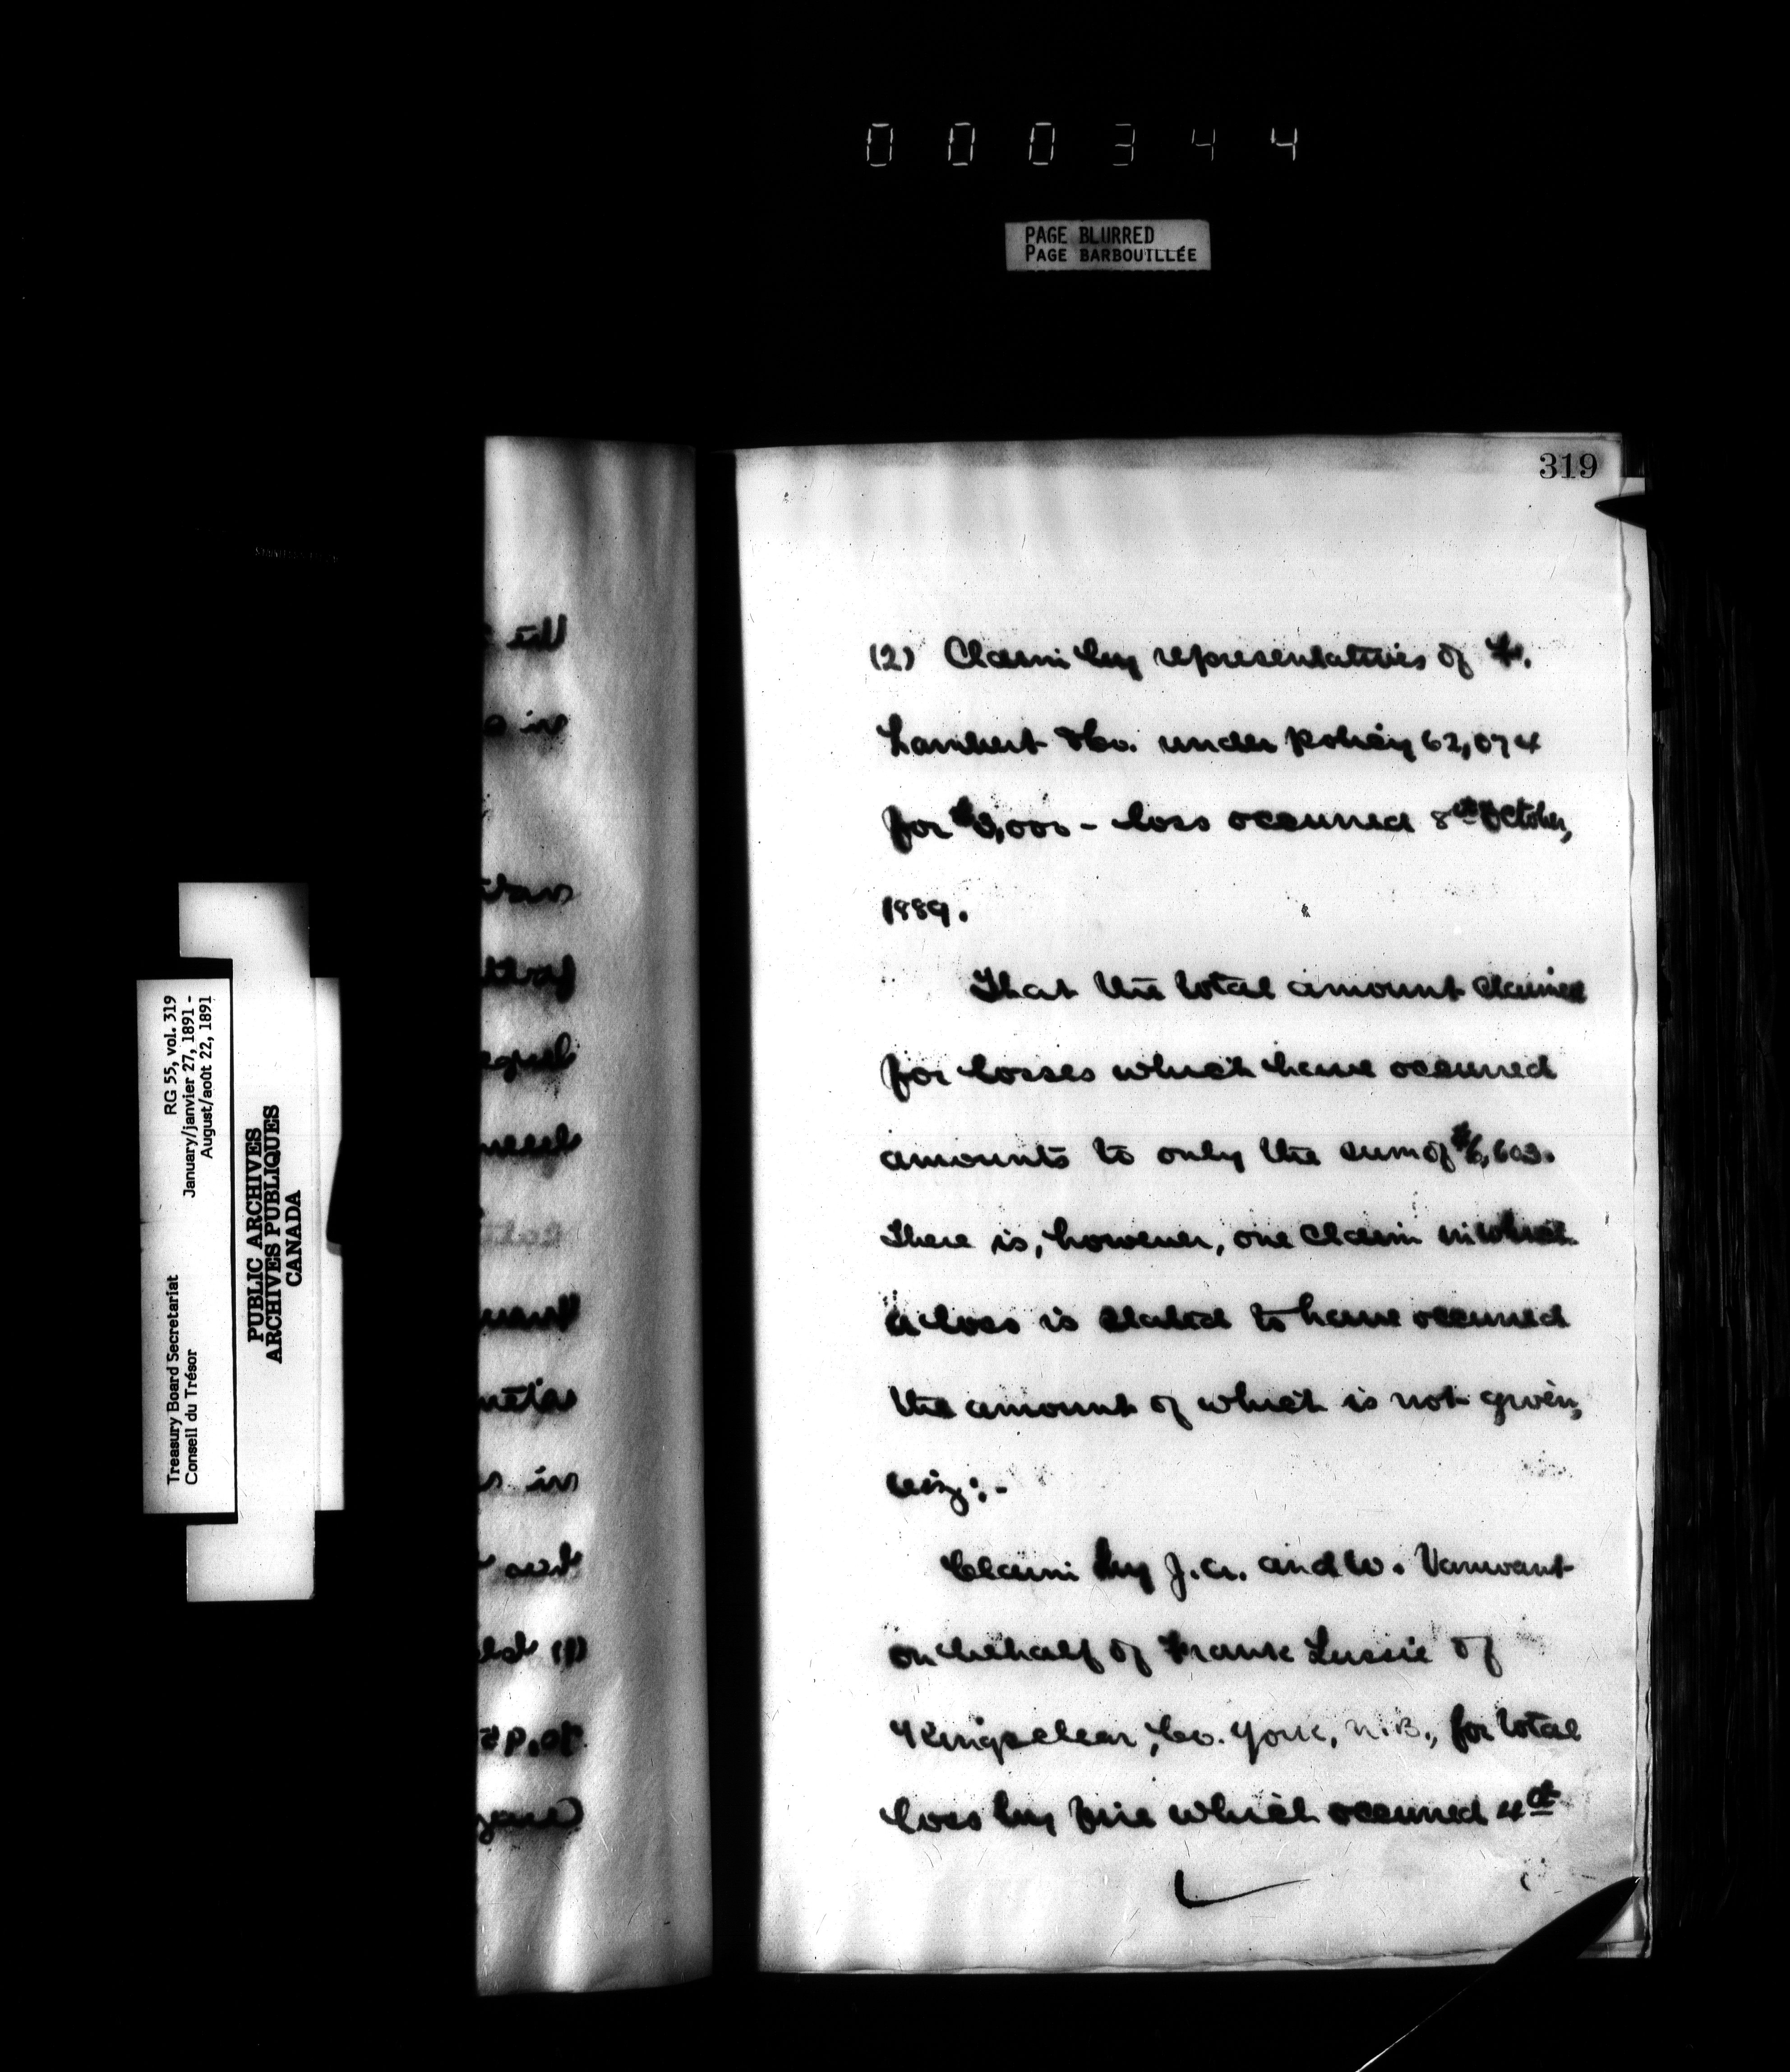 000344
PAGE BLURRED
PAGE BARBOUILLÉE
319
(2) Claim by representatives of F.
Lambert & Co. under Policy 62,074
for $3,000 - loss occurred 8th October,
1889.
That the total amount claimed
for losses which have occurred
amounts to only the sum of $6,603.
There is, however, one claim in which
a loss is stated to have occurred
the amount of which is not given,
viz:-
Claim by J.A. and W. Vanwart
on behalf of Frank Lussie of
Kingsclear, Co. York, N.B., for total
loss by fire which occurred 4th
Treasury Board Secretariat
Conseil du Trésor
RG 55, vol. 319
January/janvier 27, 1891 -
August/août 22, 1891
PUBLIC ARCHIVES
ARCHIVES PUBLIQUES
CANADA